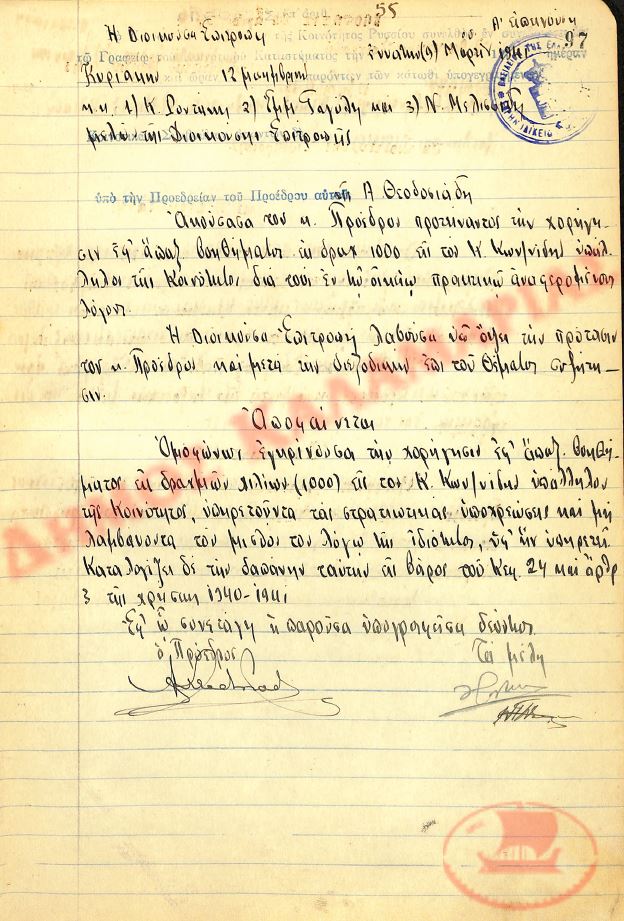 55
97
Ἡ Διοικοῦσα Ἐπιτροπὴ
τῆς Κοινότητος Ρυσίου συνελθ
τῷ Γραφείῳ τοῦ Κοινοτικοῦ Καταστήματος τὴν ἐννάτην (9) Μαρτίου 1941 ἡμέραν
Κυριακὴν καὶ ὥραν 12 μεσημβρινὴν παρόντων τῶν κάτωθι ὑπογεγραμμένων
κ.κ. 1) Κ. Ροντάκη 2) Ἐμμ. Ταγάλη καὶ 3) Ν. Μελισσ
μελῶν τῆς Διοικούσης Ἐπιτροπῆς
ὑπὸ τὴν Προεδρείαν τοῦ Προέδρου αὐτῆς Α. Θεοδοσιάδη
Ἀκούσασα τὸν κ. Πρόεδρον προτείναντος τὴν χορήγη-
σιν ἐφ' ἅπαξ βοηθήματος ἐκ δραχ 1000 εἰς τὸν Κ. Κων/νίδην ὑπάλ-
ληλον τῆς Κοινότητος διὰ τοὺς ἐν τῷ οἰκείῳ πρακτικῷ ἀναφερομένους
λόγους.
Ἡ Διοικοῦσα Ἐπιτροπὴ λαβοῦσα ὑπ' ὄψει τὴν πρότασιν
τοῦ κ. Προέδρου καὶ μετὰ τὴν διεξοδικὴν ἐπὶ τοῦ θέματος συζήτη-
σιν.
Ἀποφαίνεται
Ὁμοφώνως ἐγκρίνουσα τὴν χορήγησιν ἐφ' ἅπαξ βοηθή-
ματος ἐκ δραχμῶν χιλίων (1000) εἰς τὸν Κ. Κων/νίδην ὑπάλληλον
τῆς Κοινότητος, ὑπηρετοῦντα τὰς στρατιωτικὰς ὑποχρεώσεις καὶ μὴ
λαμβάνοντα τὸν μισθὸν του λόγῳ τῆς ἰδιότητος, ὑφ' ἣν ὑπηρετεῖ.
Καταλογίζει δὲ τὴν δαπάνην ταύτην εἰς βάρος τοῦ Κεφ. 24 καὶ ἄρθρ
3 τῆς χρήσεως 1940-1941
Ἐφ' ᾧ συνετάγη ἡ παροῦσα ὑπογραφεῖσα δεόντως.
ὁ Πρόεδρος Τὰ μέλη
ΔΗΜΟΣ ΚΑΛΑΜΑΡΙΑΣ